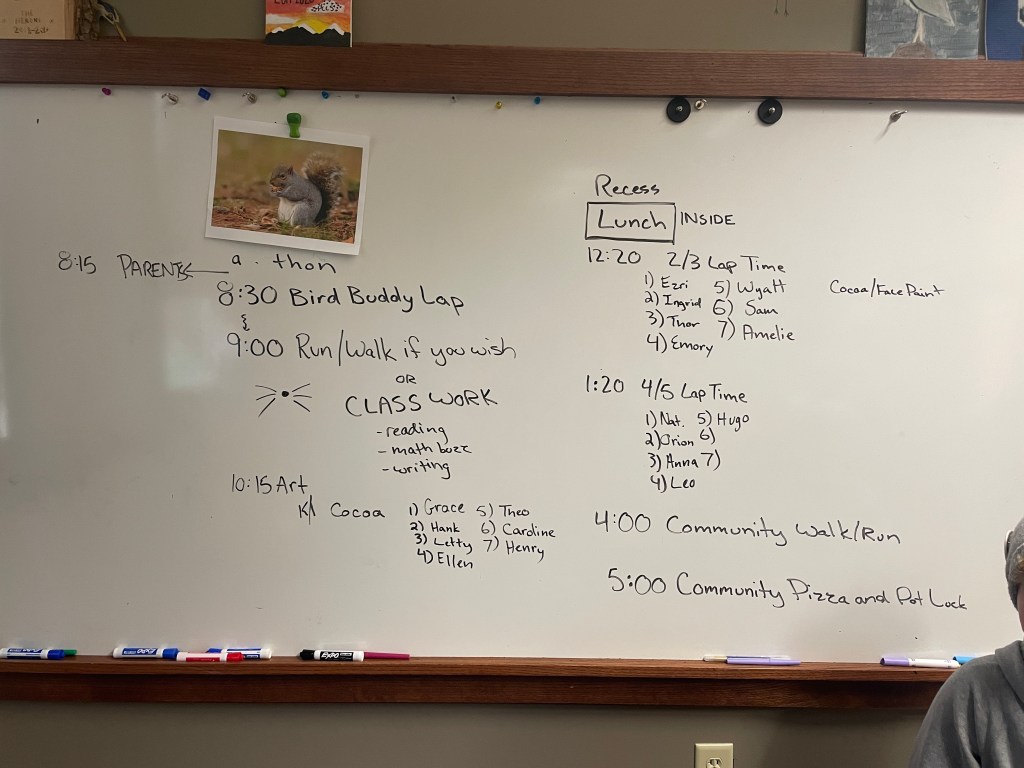 8:15 PARENTS
a · thon
8:30 Bird Buddy Lap
9:00 Run/Walk if you wish
OR
CLASS WORK
- reading
- math buzz
- writing
10:15 Art
Cocoa
1) Grace 5) Theo
2) Hank 6) Caroline
3) Letty 7) Henry
4) Ellen
Recess
Lunch INSIDE
12:20 2/3 Lap Time
1) Ezri 5) Wyatt
2) Ingrid 6) Sam
3) Thor 7) Amelie
4) Emory
Cocoa/Face Paint
1:20 4/5 Lap Time
1) Nat. 5) Hugo
2) Orion 6)
3) Anna 7)
4) Leo
4:00 Community Walk/Run
5:00 Community Pizza and Pot Lock
EXPO